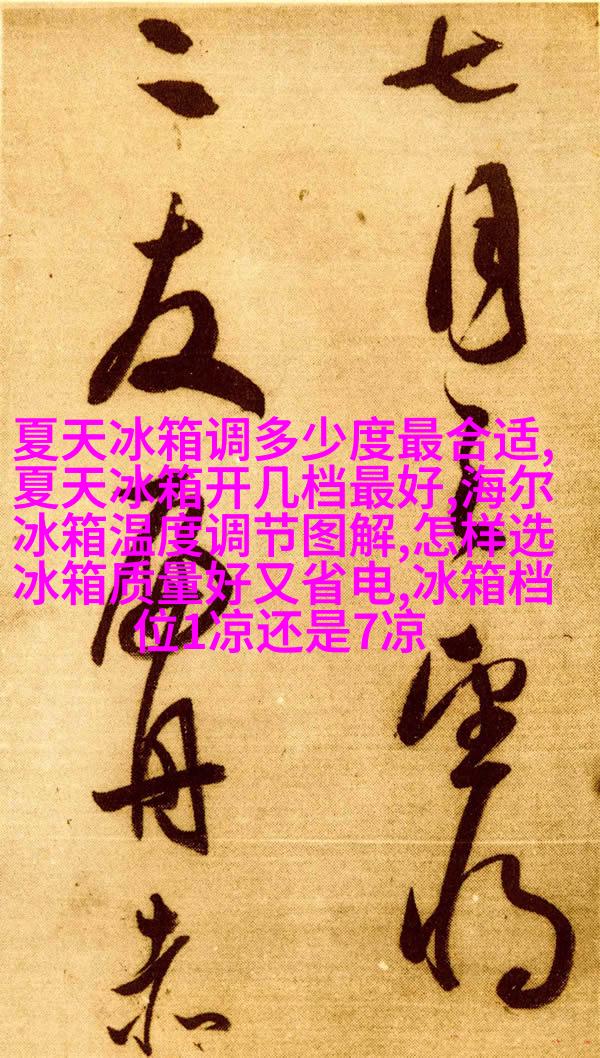 七月望將
二友舟赤
夏天冰箱调多少度最合适,
夏天冰箱开几档最好,海尔
冰箱温度调节图解,怎样选
冰箱质量好又省电,冰箱档
位1凉还是7凉